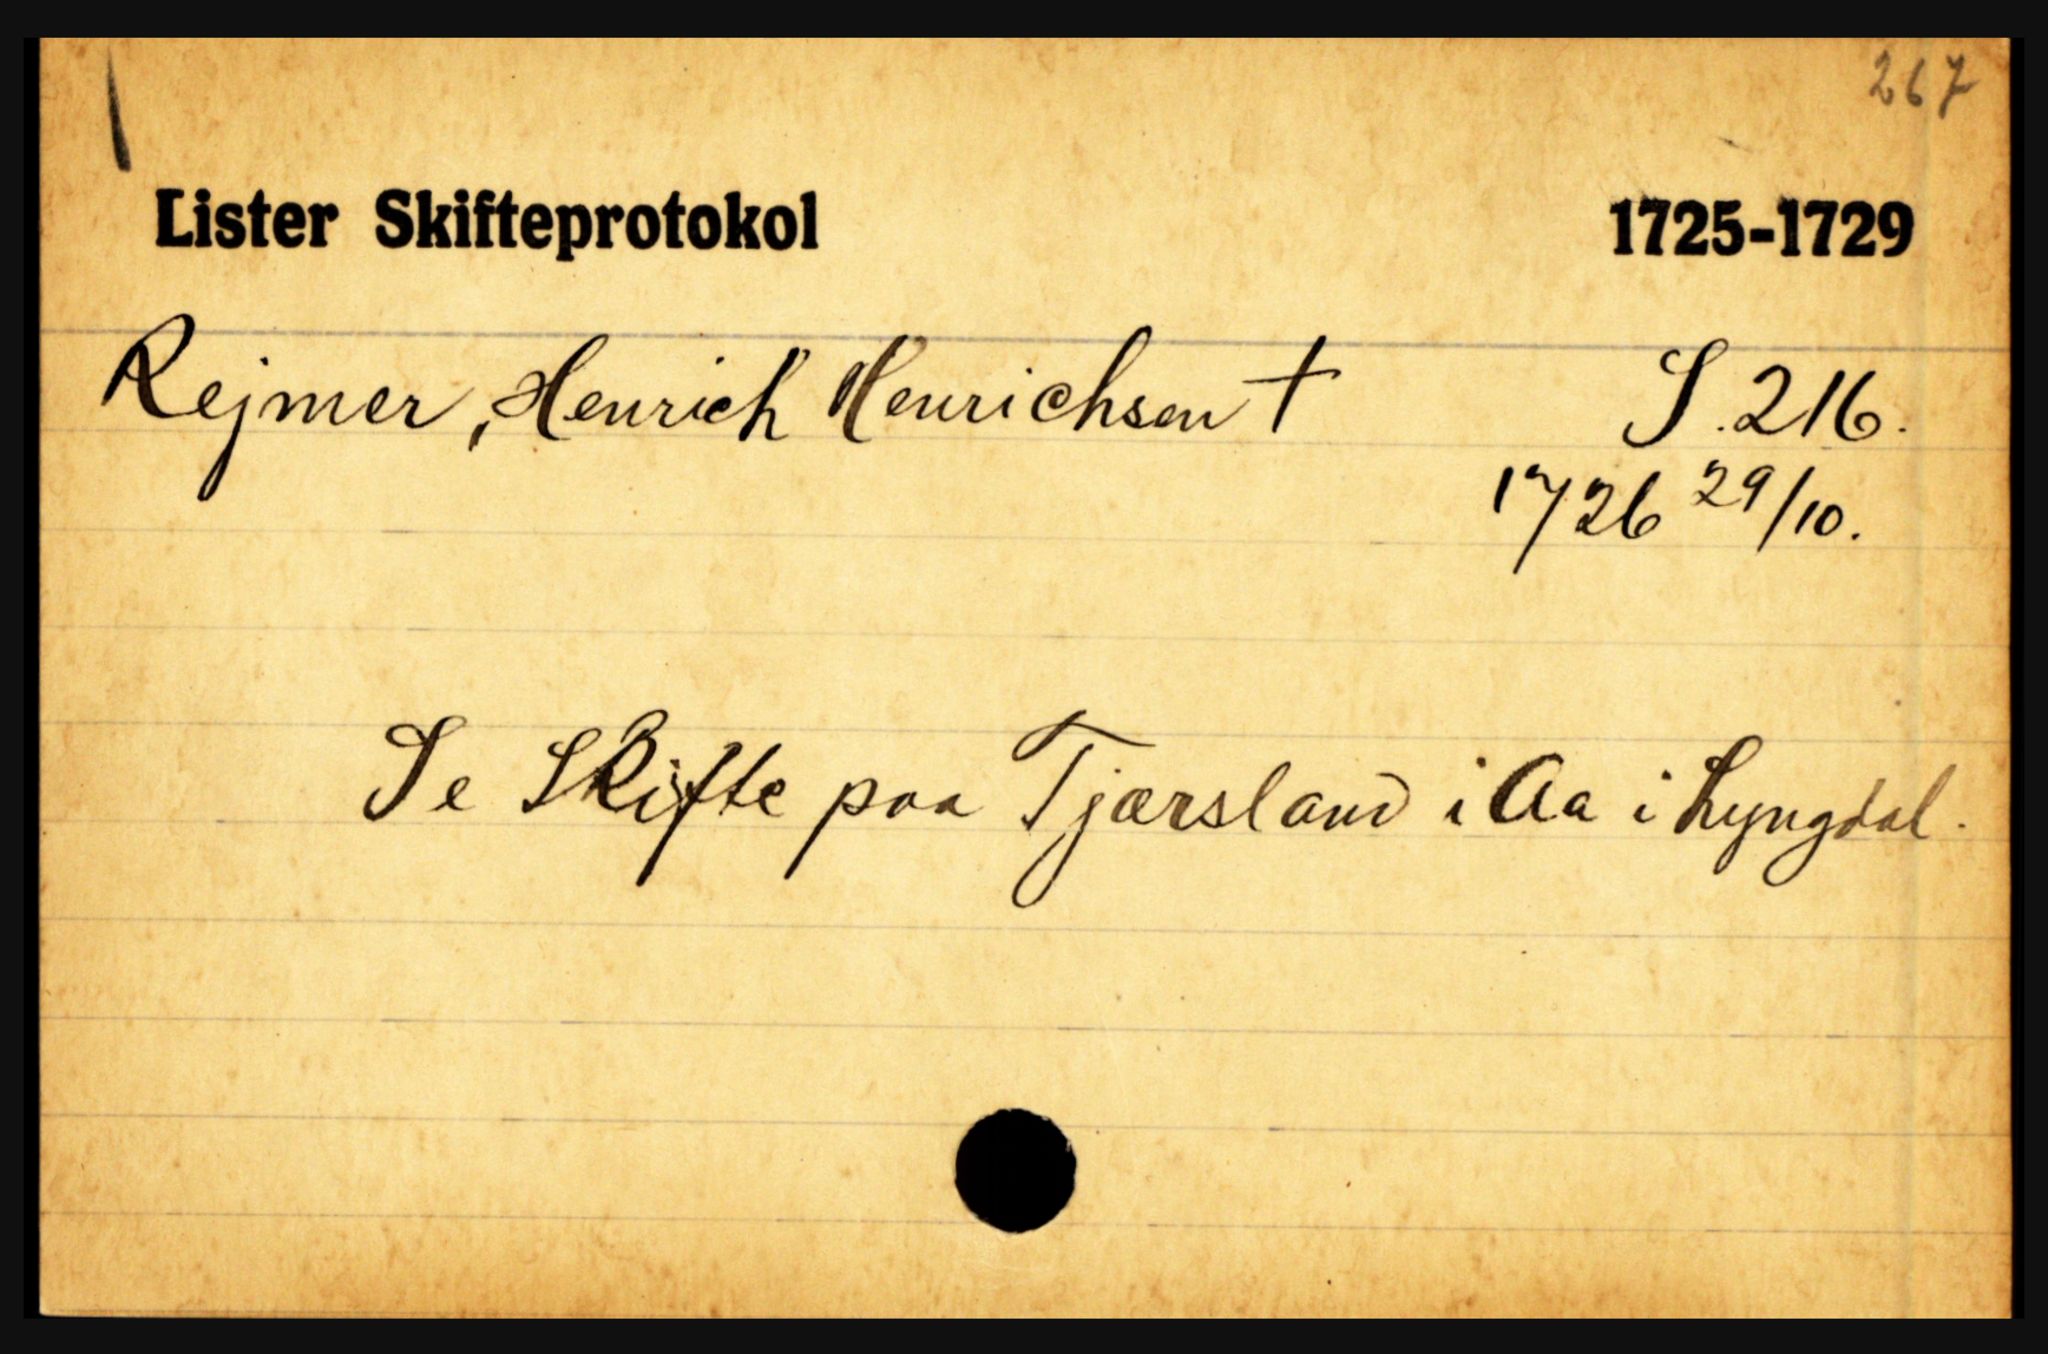 267
Lister Skifteprotokol 1725-1729
Rejmer, Henrich Henrichsen † S. 216.
1726 29/10.
Se Skifte paa Tjærsland i Aa i Lyngdal.